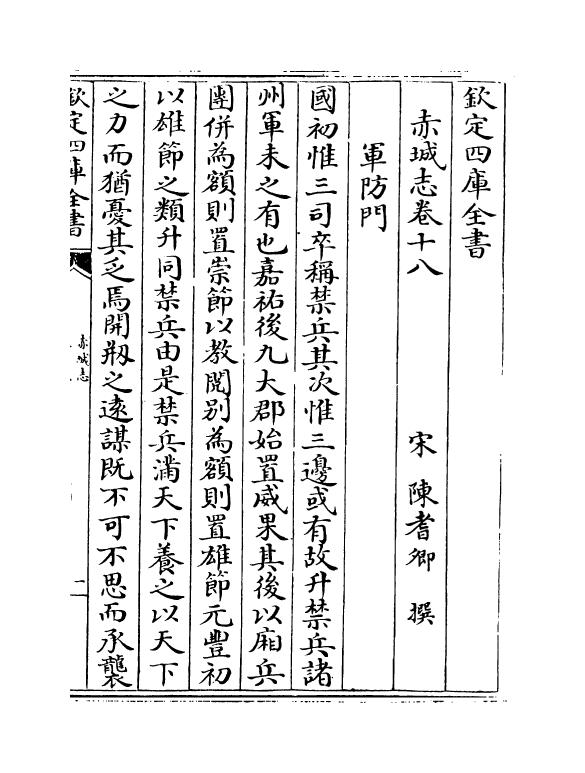 欽定四庫全書
赤城志卷十八
宋 陳耆卿 撰
軍防門
國初惟三司卒稱禁兵其次惟三邊或有故升禁兵諸
州軍未之有也嘉祐後九大郡始置威果其後以廂兵
團併為額則置崇節以教閱别為額則置雄節元豐初
以雄節之類升同禁兵由是禁兵滿天下養之以天下
之力而猶憂其乏焉開剏之逺謀既不可不思而承襲
欽定四庫全書
赤城志